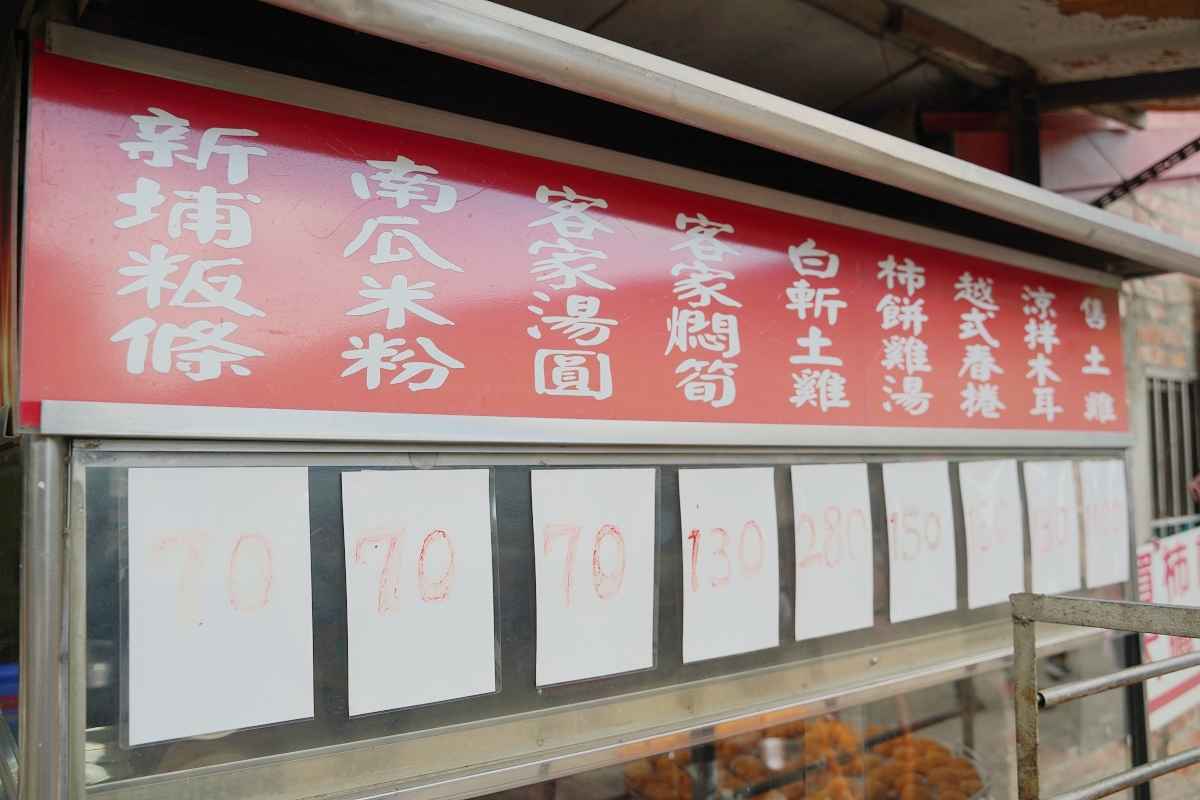 新埔粄條
南瓜米粉
客家湯圓
客家燜筍
白斬土雞
柿餅雞湯
越式春捲
涼拌木耳
售土雞
70
70
70
130
280
150
130
130
柿